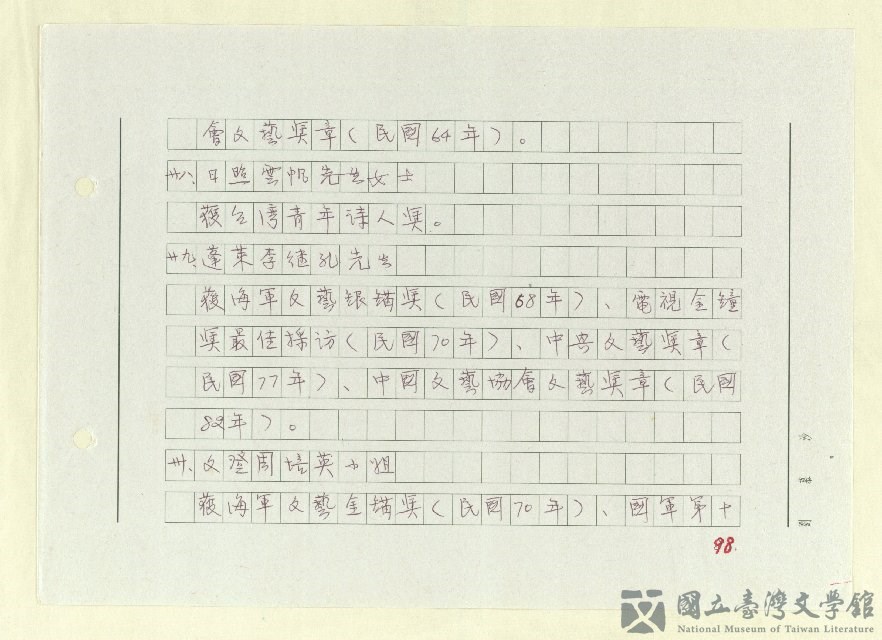 會文藝奬章（民國64年）。
廿八、日照雲帆先生女士
獲台湾青年诗人奬。
廿九、蓬莱李继孔先生
獲海軍文藝银锚奬（民國68年）、電視金鐘
奬最佳採访（民國70年）、中央文藝奬章（
民國77年）、中國文藝協會文藝奬章（民國
82年）。
卅、文登周培英小姐
獲海軍文藝金锚奬（民國70年）、國軍第十
98.
國立臺灣文學館
National Museum of Taiwan Literature